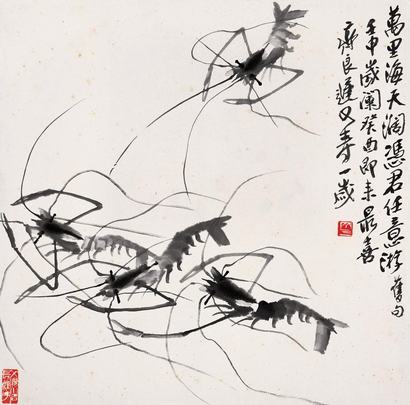 萬里海天濶憑君任意游舊句
壬申歲闌癸酉即来最喜
齊良遲又壽一歲